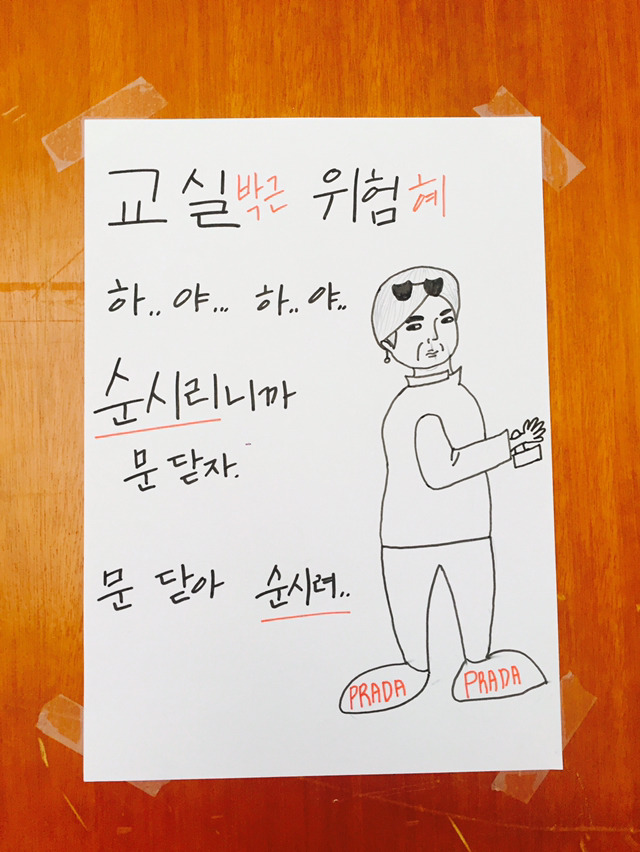 교실박근 위험혜
하.. 야... 하.. 야..
순시리니까
문 닫자.
문 닫아 순시려..
PRADA PRADA